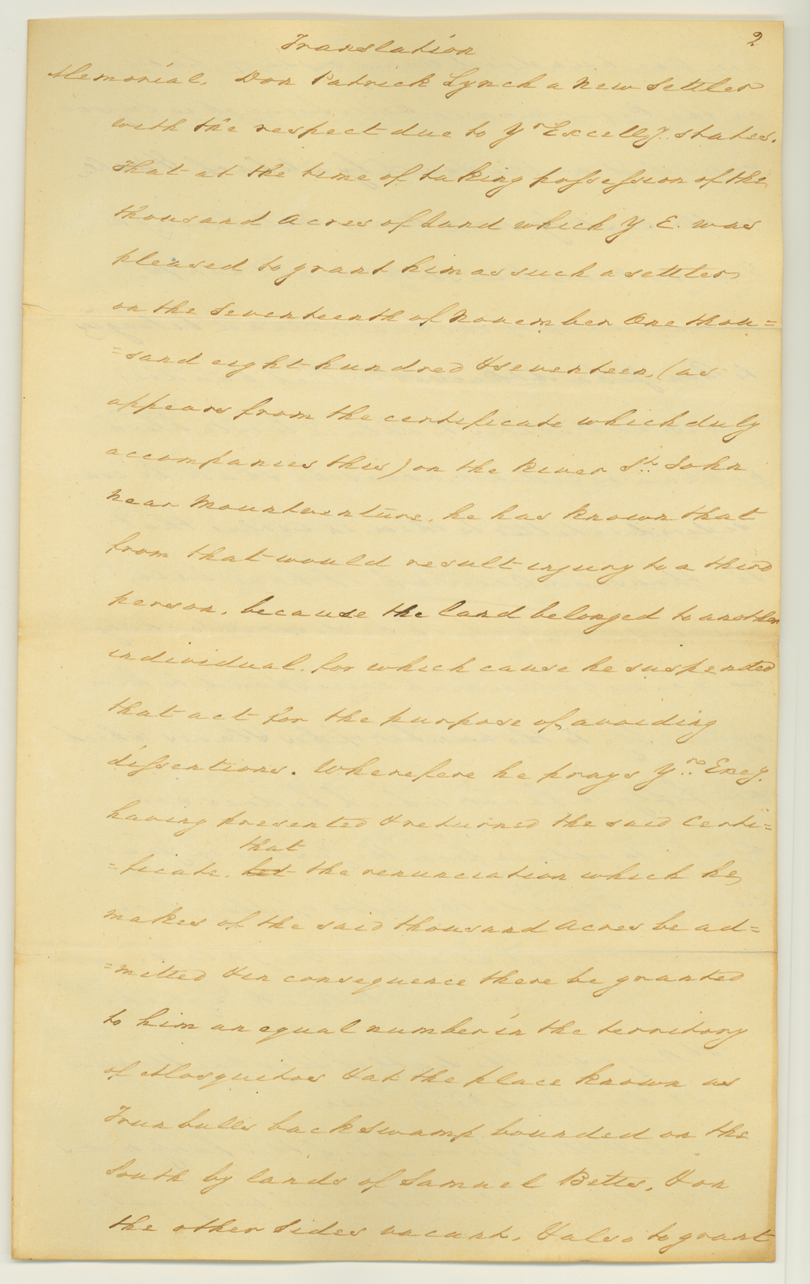 2
Translation
Memorial. Don Patrick Lynch a new settler
with the respect due to Yr Excelly. states.
That at the time of taking possession of the
thousand acres of land which Y. E. was
pleased to grant him as such a settler
on the seventeenth of November One thou=
=sand eight hundred & seventeen, (as
appears from the certificate which duly
accompanies this) on the River St. John
near Mountventure. he has known that
from that would result injury to a third
person. because the land belonged to another
individual. for which cause he suspended
that act for the purpose of avoiding
dissentions. Wherefore he prays Yr. Excy.
having presented & returned the said Certi=
=ficate. let that the renunciation which he
makes of the said thousand acres be ad=
=mitted & in consequence there be granted
to him an equal number in the territory
of Mosquitoes & at the place known as
Trunbulls back swamp bounded on the
South by lands of Samuel Betts, & on
the other sides vacant, & also to grant